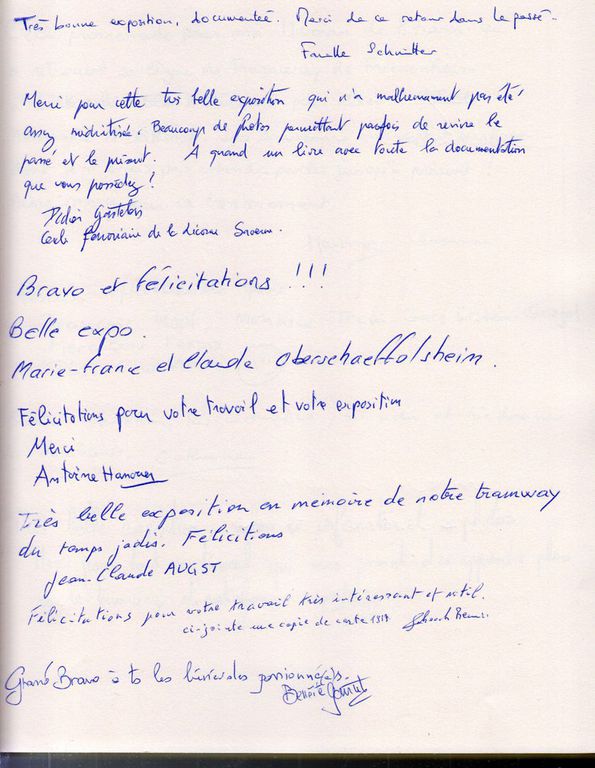 Très bonne exposition, documentée. Merci de ce retour dans le passé.
Famille Schmitter
Merci pour cette très belle exposition qui n'a malheureusement pas été
assez médiatisée. Beaucoup de photos permettant parfois de revivre le
passé et le présent. A quand un livre avec toute la documentation
que vous possédez !
Didier
Cercle Ferroviaire de la Licorne Saverne.
Bravo et félicitations !!!
Belle expo.
Marie-France et Claude Oberschaeffolsheim.
Félicitations pour votre travail et votre exposition
Merci
Antoine
Très belle exposition en mémoire de notre tramway
du temps jadis. Félicitions
Jean-Claude AUGST
Félicitations pour votre travail très intéressant et utile.
ci-jointe une copie de carte
Grand Bravo à ts les bénévoles passionné(e)s.
Benoît